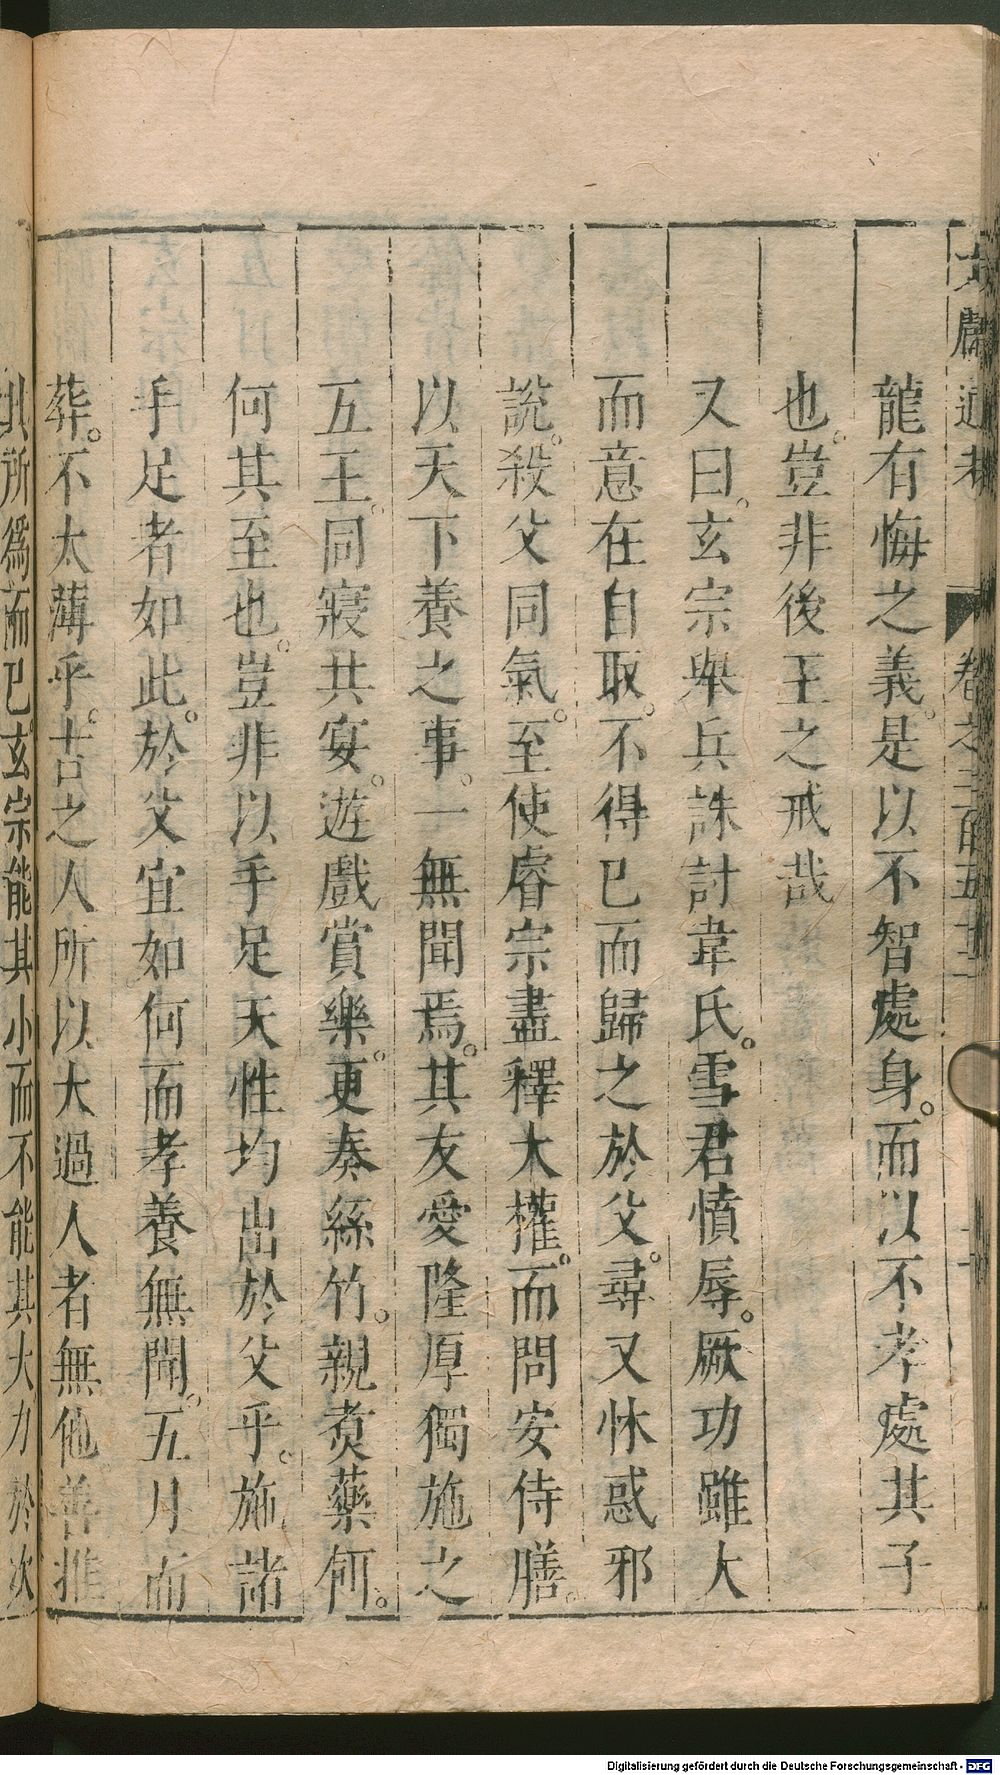 文獻通考 卷之二百五十二
龍有悔之義。是以不智處身。而以不孝處其子
也。豈非後王之戒哉
又曰。玄宗舉兵誅討韋氏。雪君憤辱。厥功雖大
而意在自取。不得已而歸之於父。尋又怵惑邪
說。殺父同氣。至使睿宗盡釋大權。而問安侍膳。
以天下養之事。一無聞焉。其友愛隆厚獨施之
五王。同寢共宴。遊戲賞樂。更奏絲竹。親煑藥餌。
何其至也。豈非以手足天性均出於父乎。施諸
手足者如此。於父宜如何而孝養無聞。五月而
葬。不太薄乎。古之人所以大過人者無他善推
其所爲而已。玄宗能其小而不能其大力於次
Digitalisierung gefördert durch die Deutsche Forschungsgemeinschaft - DFG